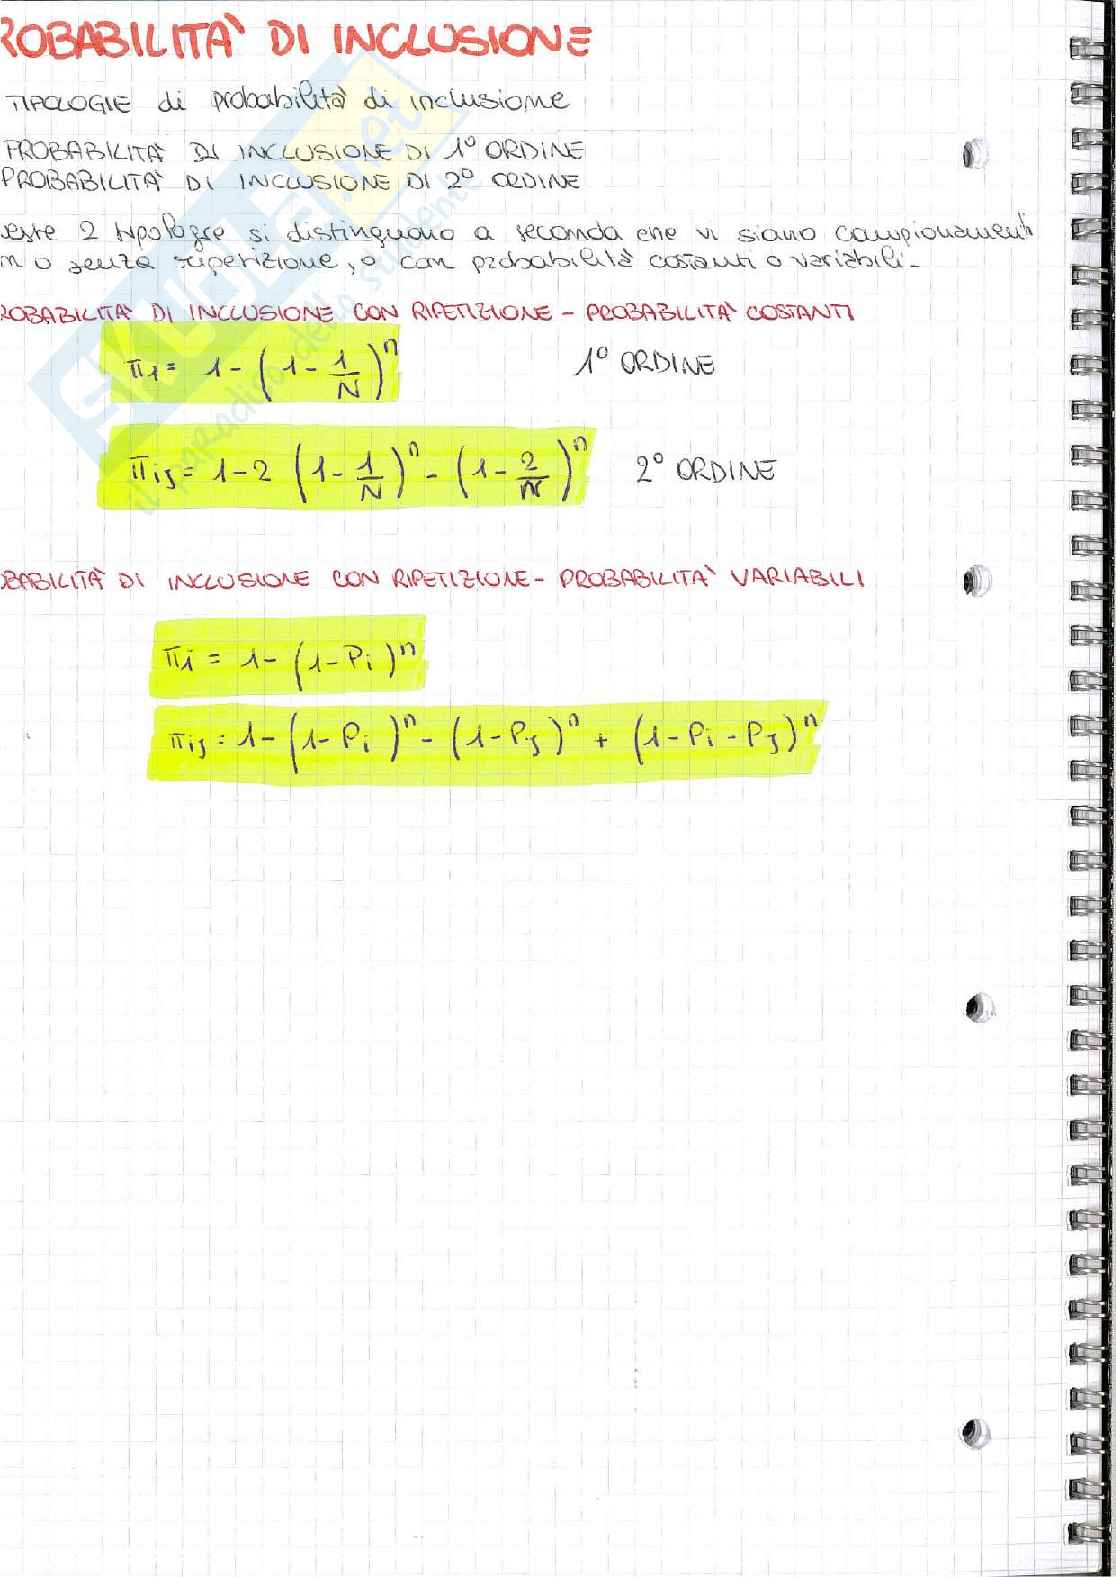 ROBABILITA' DI INCLUSIONE
TIPOLOGIE di probabilità di inclusione
PROBABILITA' DI INCLUSIONE DI 1° ORDINE
PROBABILITA' DI INCLUSIONE DI 2° ORDINE
ueste 2 tipologie si distinguono a seconda che vi siano campionamenti
n o senza ripetizione, o con probabilità costanti o variabili.
ROBABILITA' DI INCLUSIONE CON RIPETIZIONE - PROBABILITA' COSTANTI
π1 = 1 - (1 - 1/N)^n 1° ORDINE
πij = 1 - 2 (1 - 1/N)^n - (1 - 2/N)^n 2° ORDINE
OBABILITA' DI INCLUSIONE CON RIPETIZIONE - PROBABILITA' VARIABILI
πi = 1 - (1 - Pi)^n
πij = 1 - (1 - Pi)^n - (1 - Pj)^n + (1 - Pi - Pj)^n
SKUOLA.net
il paradiso dello studente